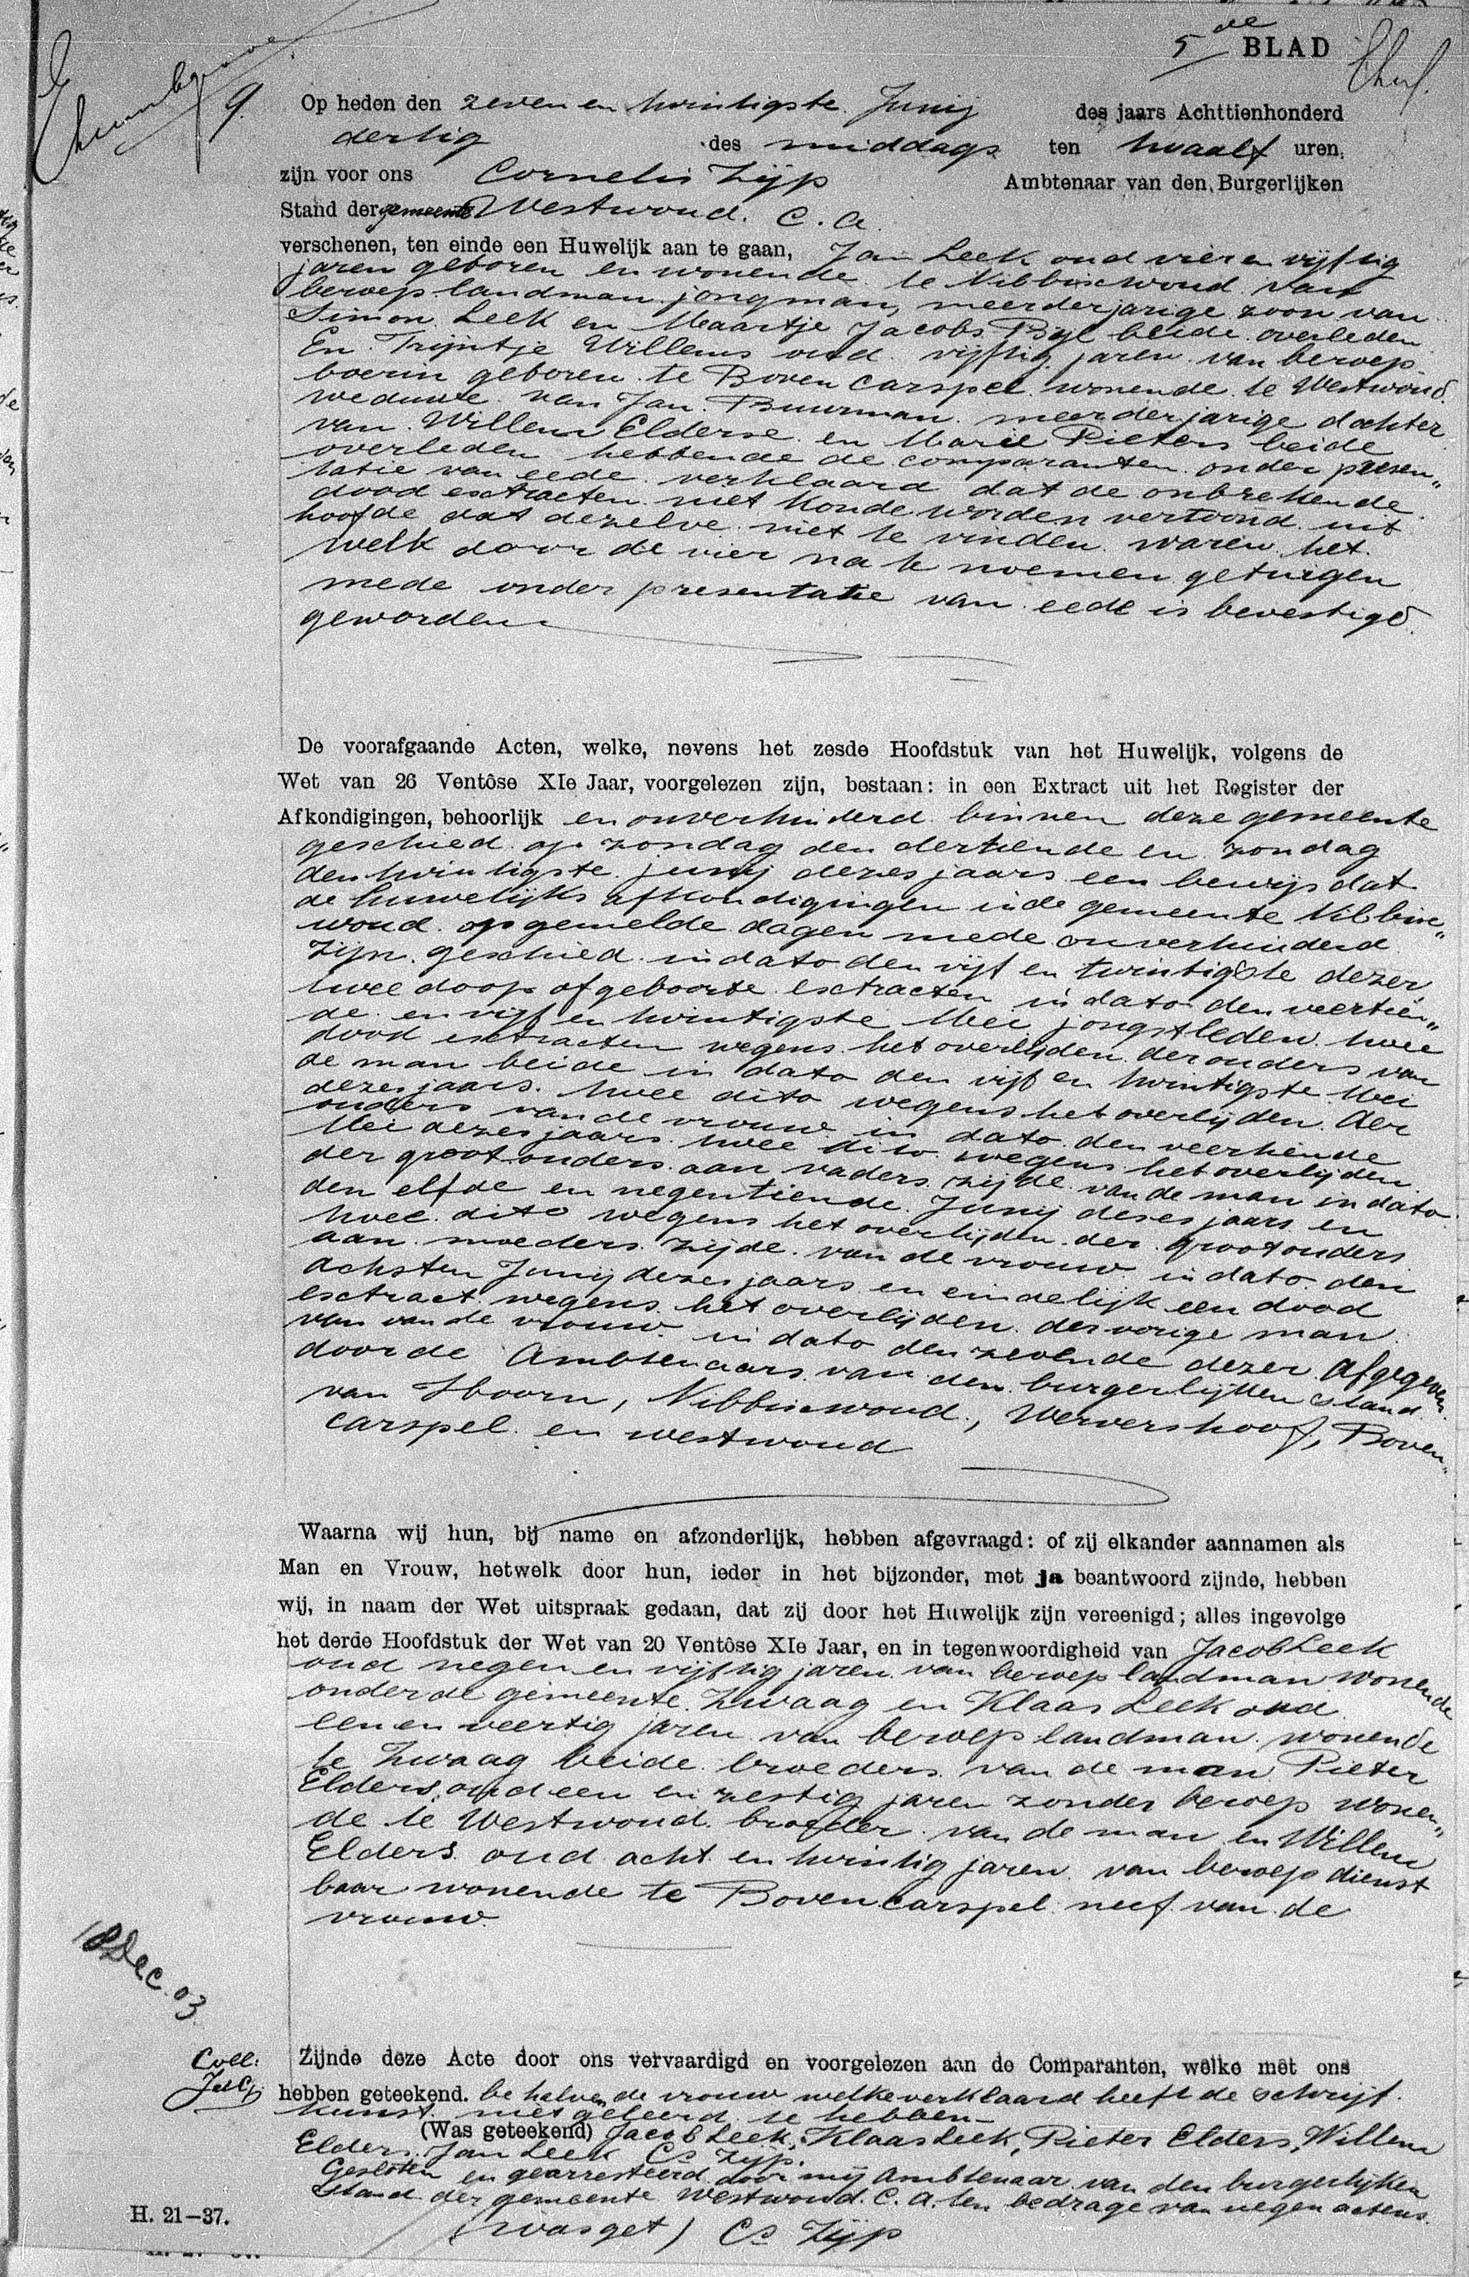 5de BLAD
9.
Op heden den zeven en twintigste Junij des jaars Achttienhonderd
dertig des middags ten twaalf uren,
zijn voor ons Cornelis Zijp Ambtenaar van den Burgerlijken
Stand der gemeente Westwoud. C. A.
verschenen, ten einde een Huwelijk aan te gaan, Jan Leek oud vier en vijftig
jaren geboren en wonende te Nibbixwoud van
beroep landman jongman, meerderjarige zoon van
Simon Leek en Maartje Jacobs Bijl beide overleden
En Trijntje Willems oud vijftig jaren van beroep
boerin geboren te Boven carspel wonende te Westwoud
weduwe van Jan Buurman meerderjarige dochter
van Willem Elderse en Marie Pieters beide
overleden hebbende de comparanten onder presen„
tatie van eede verklaard dat de onbrekende
dood extracten niet konde worden vertoond uit
hoofde dat dezelve niet te vinden waren het
welk door de vier na te noemen getuigen
mede onder presentatie van eede is bevestigd
geworden
De voorafgaande Acten, welke, nevens het zesde Hoofdstuk van het Huwelijk, volgens de
Wet van 26 Ventôse XIe Jaar, voorgelezen zijn, bestaan: in een Extract uit het Register der
Afkondigingen, behoorlijk en onverhinderd binnen deze gemeente
geschied op zondag den dertiende en zondag
den twintigste junij dezes jaars een bewijs dat
de huwelijks afkondigingen in de gemeente Nibbix„
woud op gemelde dagen mede onverhinderd
zijn geschied in dato den vijf en twintigste dezer
twee doop of geboorte extracten in dato den veertien„
de en vijf en twintigste Mei jongstleden twee
dood extracten wegens het overlijden der ouders van
de man beide in dato den vijf en twintigste Mei
dezes jaars. twee dito wegens het overlijden der
ouders van de vrouw in dato den veertiende
Mei dezes jaars twee dito wegens het overlijden
der groot ouders aan vaders zijde van de man in dato
den elfde en negentiende Junij dezes jaars en
twee dito wegens het overlijden der grootouders
aan moeders zijde van de vrouw in dato den
achsten Junij dezes jaars en eindelijk een dood
extract wegens het overlijden der vorige man
van van de vrouw in dato den zevende dezer afgegeven
door de Ambtenaars van den burgerlijken stand
van Hoorn, Nibbixwoud, Wervershoof, Boven„
carspel en westwoud
Waarna wij hun, bij name en afzonderlijk, hebben afgevraagd: of zij elkander aannamen als
Man en Vrouw, hetwelk door hun, ieder in het bijzonder, met ja beantwoord zijnde, hebben
wij, in naam der Wet uitspraak gedaan, dat zij door het Huwelijk zijn vereenigd; alles ingevolge
het derde Hoofdstuk der Wet van 20 Ventôse XIe Jaar, en in tegenwoordigheid van Jacob Leek
oud negen en vijftig jaren van beroep landman wonende
onder de gemeente Zwaag en Klaas Leek oud
een en veertig jaren van beroep landman wonende
te Zwaag beide broeders van de man Pieter
Elders, oud een en zestig jaren zonder beroep wonen„
de te Westwoud broeder van de man en Willem
Elders oud acht en twintig jaren van beroep dienst
baar wonende te Boven carspel neef van de
vrouw
18 Dec. 03
Coll:
Zijnde deze Acte door ons vervaardigd en voorgelezen aan de Comparanten, welke met ons
hebben geteekend. behalve de vrouw welke verklaard heeft de schrijf
kunst niet geleerd te hebben
(Was geteekend) Jacob Leek, Klaas Leek, Pieter Elders, Willem
Elders Jan Leek Cs Zijp.
Gesloten en gearresteerd door mij Ambtenaar van den burgerlijken
stand der gemeente Westwoud. C. A. ten bedrage van negen actens.
(was get) Cs Zijp
H. 21–37.